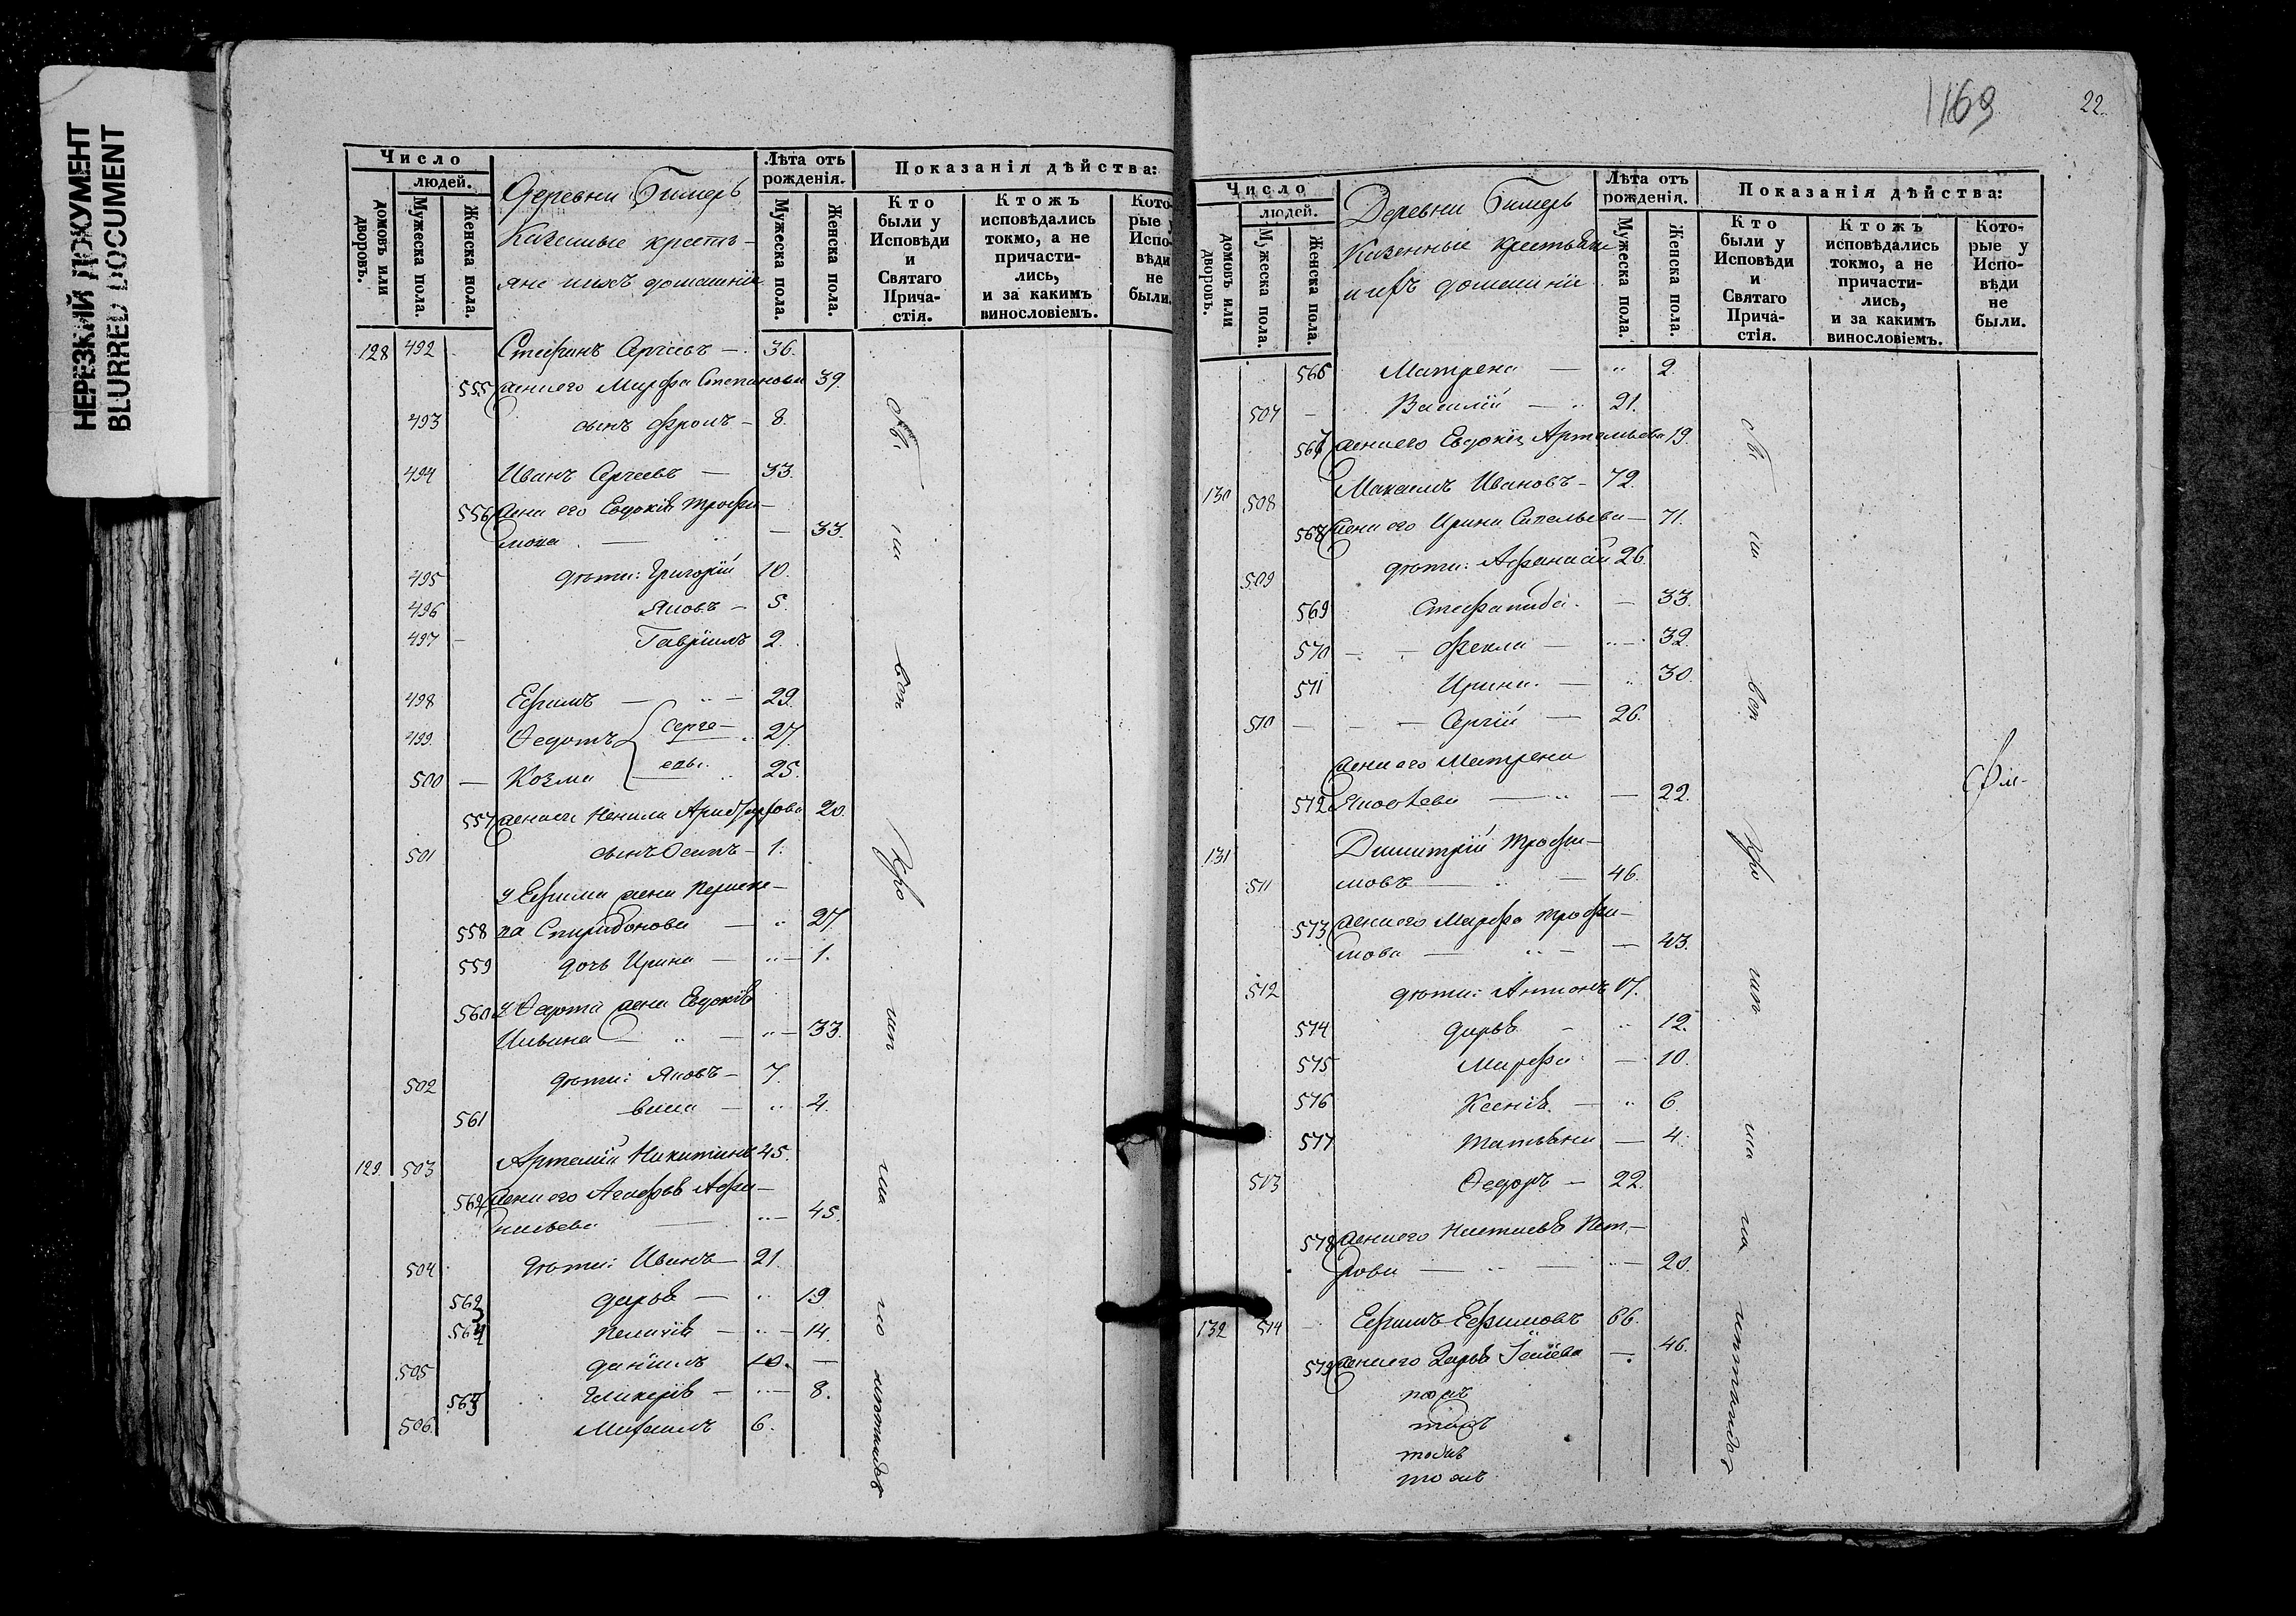 НЕРЕЗКИЙ ДОКУМЕНТ
BLURRED DOCUMENT
Число
людей.
домовъ или дворовъ.
Мужеска пола.
Женска пола.
Деревни Бимерь
Казенные кресть-
яне ихъ домашніе
Лѣта отъ рожденія.
Мужеска пола.
Женска пола.
Показанія дѣйства:
Кто были у Исповѣди и Святаго Прича-стія.
Ктожъ исповѣдались токмо, а не причасти-лись, и за какимъ винословіемъ.
Кото-рые у Испо-вѣди не были.
128 492 Стефанъ Сергѣевъ — 36.
555 жена его Марфа Степанова 39.
493 сынъ Фролъ — 8.
494 Иванъ Сергѣевъ — 33.
556 жена его Евдокія Трофи-
мова — 33.
495 дѣти: Григорій 10.
496 Яковъ — 5.
497 — Гавріилъ 2.
498 Ефимъ — 29.
499 Ѳедотъ Серге- 27.
500 — Козма евы. 25.
557 жена Ненила 20.
501 сынъ Осипъ — 1.
у Ефима жена
558 Спиридонова — 27.
559 дочь Ирина — 1.
560 у Ѳедота жена Евдокія
Ильина — 33.
502 дѣти: Яковъ — 7.
561 4.
129. 503 Артемій Никитинъ 45.
562 жена его Агафья Афа-
насьева — 45.
504 дѣти: Иванъ — 21.
563 Дарья — 19
564 Пелагія — 14.
505 Даніилъ 10. —
565 Гликерія — 8.
506. Михаилъ 6.
1169 22.
Число
людей.
домовъ или дворовъ.
Мужеска пола.
Женска пола.
Деревни Бимерь
Казенные крестьяне
и ихъ домашніе
Лѣта отъ рожденія.
Мужеска пола.
Женска пола.
Показанія дѣйства:
Кто были у Исповѣди и Святаго Прича-стія.
Ктожъ исповѣдались токмо, а не причасти-лись, и за какимъ винословіемъ.
Кото-рые у Испо-вѣди не были.
566 Матрена — 2.
507 — Василій — 21.
567 жена его Евдокія Артемьева 19.
130 508 Максимъ Ивановъ — 72.
568 жена его Ирина Савельева — 71.
509 дѣти: Афанасій 26.
569 Стефанида. — 33.
570 — Фекла — 32.
571 Ирина. — 30.
510 — Сергій — 26.
жена его Матрена
572 Яковлева — 22.
131 Димитрій Трофи-
511 мовъ — 46.
573 жена его Марфа Трофи-
мова — 43.
512 дѣти: Антонъ 17.
574 Дарья — 12.
575 Марфа — 10.
576 Ксенія — 6.
577 Татьяна — 4.
513 Ѳедоръ — 22.
578 жена его Настасья Пет-
рова — 20.
132 514 — Ефимъ Ефимовъ 66.
579 жена его Дарья — 46.